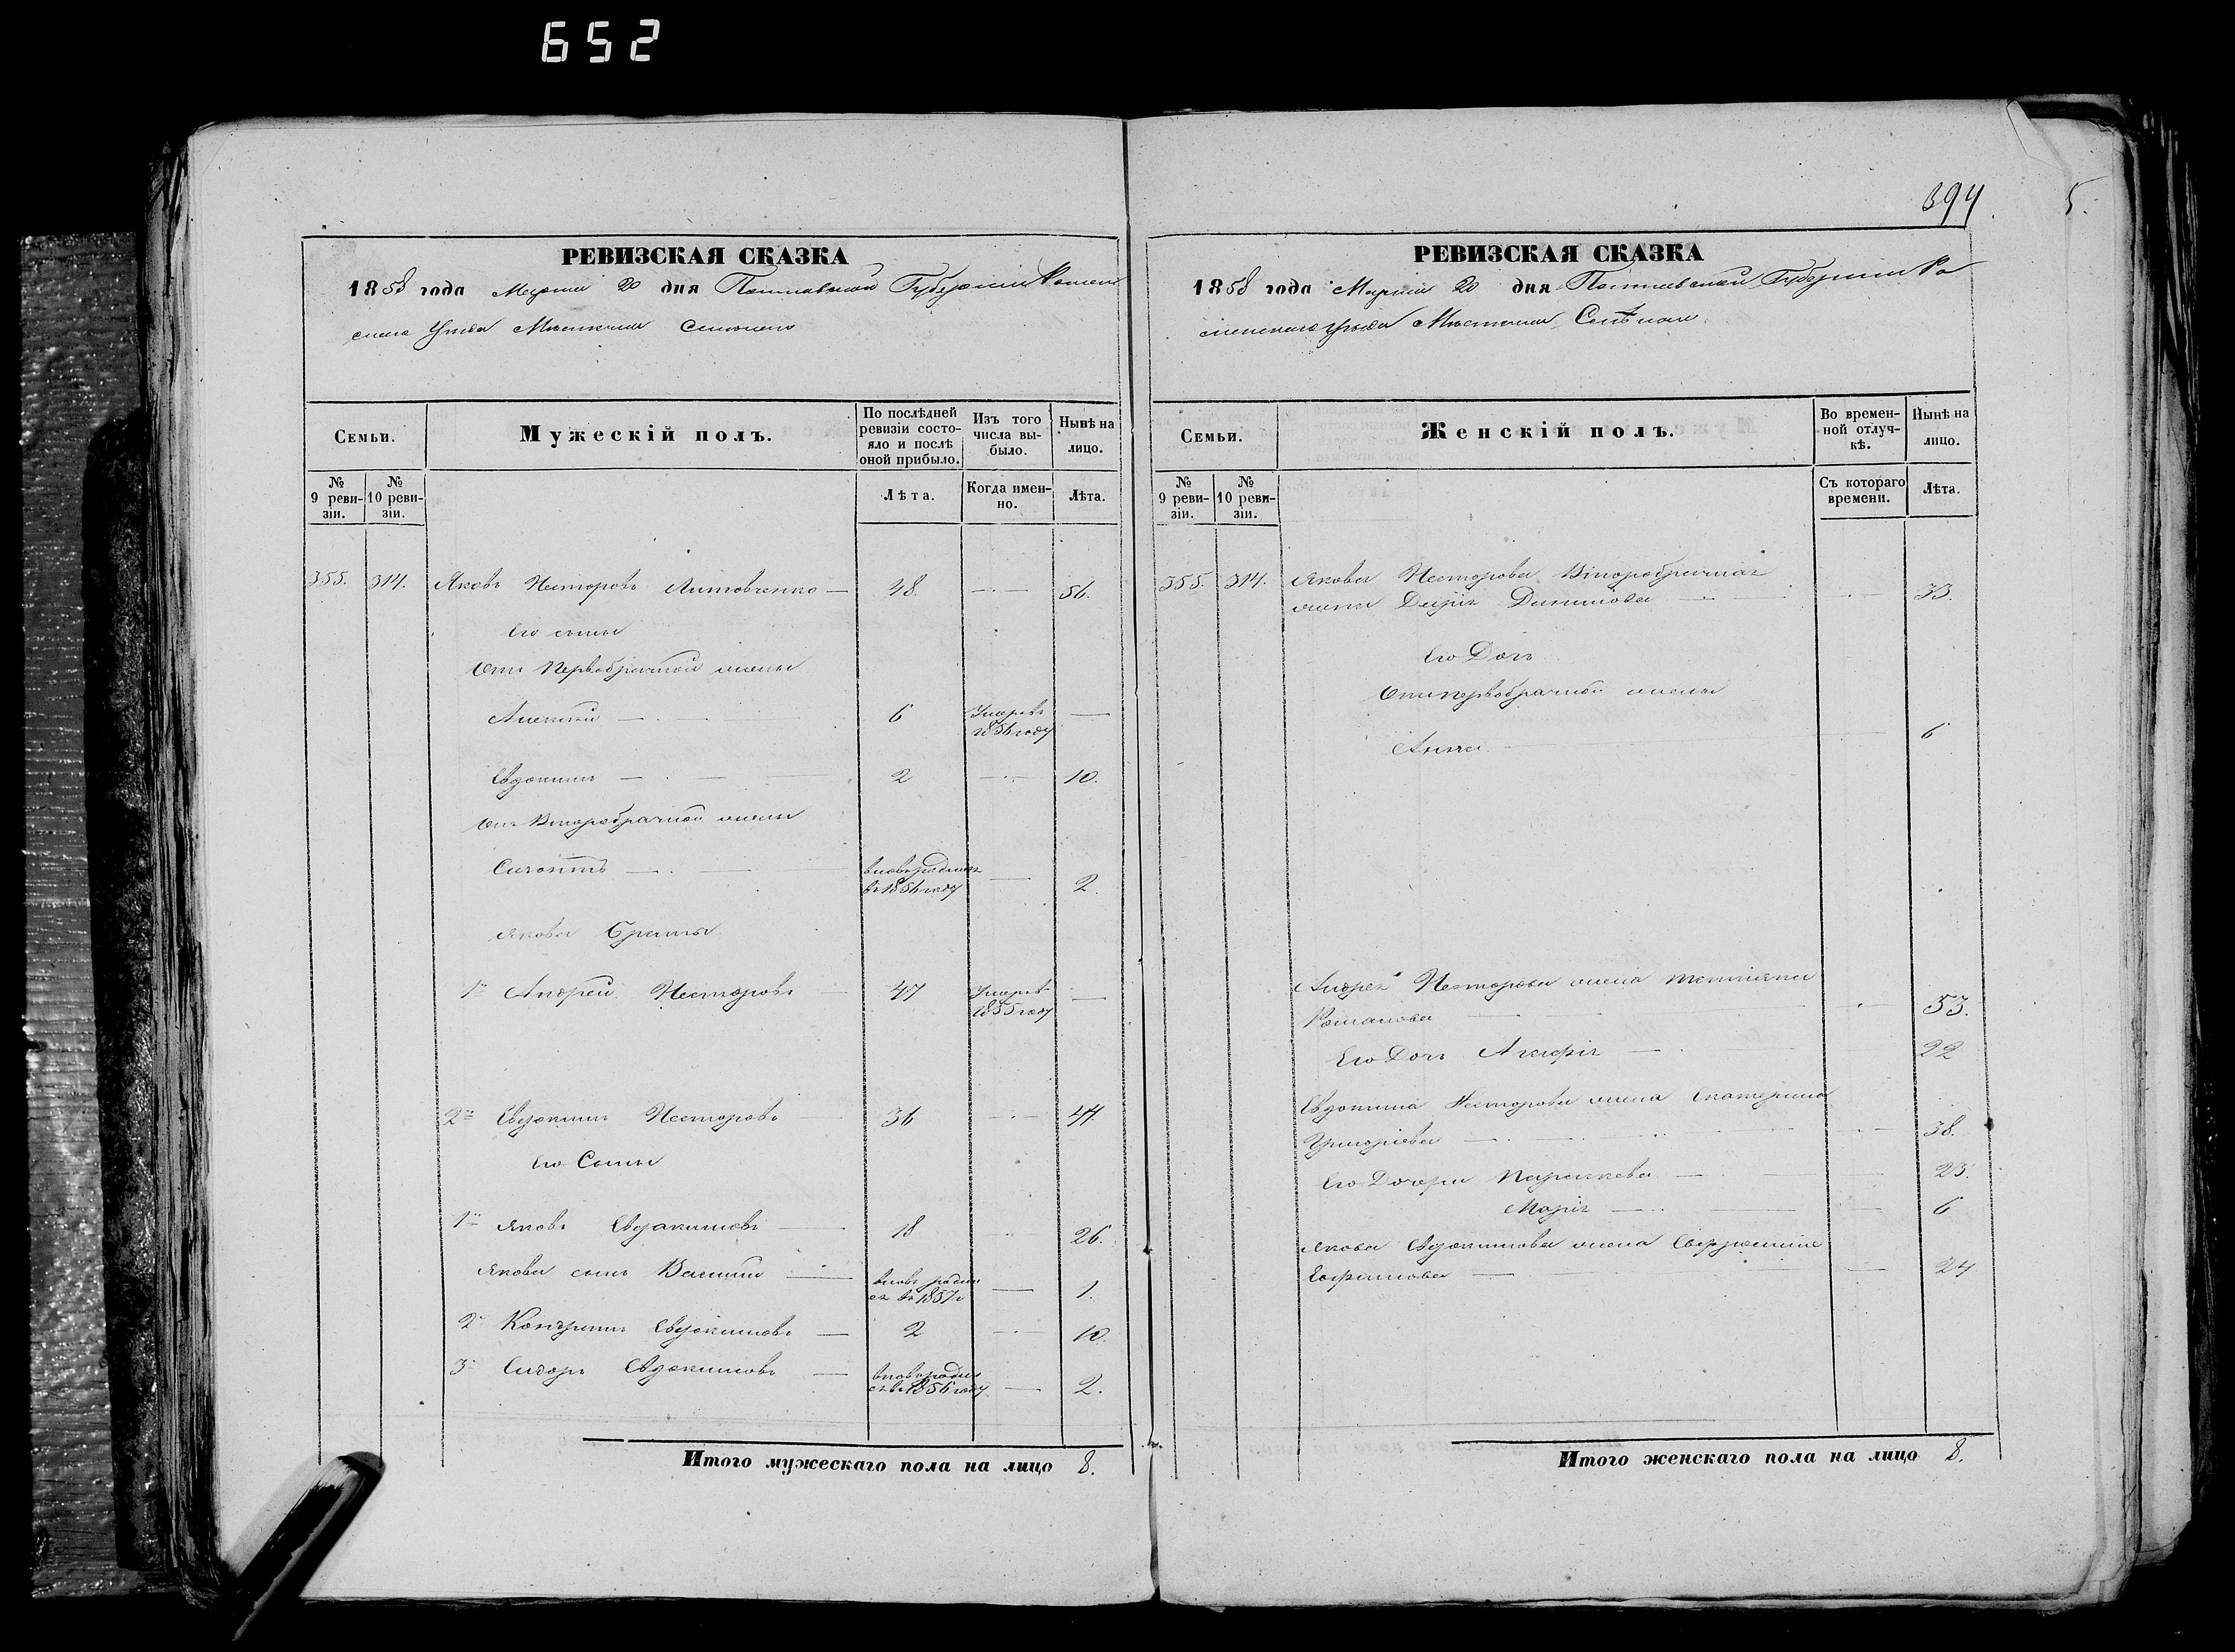 652
394.
5.
РЕВИЗСКАЯ СКАЗКА
1858 года Марта 20 дня Полтавской Губернiи Ромен
скаго Уезда Местечка
Семьи.
Мужескiй полъ.
По послѣдней ревизiи состо-
яло и послѣ
оной прибыло.
Изъ того
числа вы-
было.
Нынѣ на
лицо.
№
9 реви-
зiи.
№
10 реви-
зiи.
Лѣта.
Когда имен-
но.
Лѣта.
355. 314. Яковъ Несторовъ Литовченко — 48. — 56.
Его сыны
Отъ Первобрачной жены
Алексѣй — 6 Умеръ въ
1856 году —
Евдокимъ — 2 — 10.
Отъ Второбрачной жены
вновь родился
въ 1856 году — 2.
Якова Браты
1й Андрей Несторовъ 47 Умеръ въ
1855 году —
2й Евдокимъ Несторовъ 36 — 44.
Его Сыны
1й Яковъ Евдокимовъ — 18 — 26.
Якова сынъ Василий — вновь родил
ся въ 1857 г — 1.
2й Кондратъ Евдокимовъ — 2 — 10.
3й Сидоръ Евдокимовъ — вновь родил
ся въ 1856 году — 2.
Итого мужескаго пола на лицо 8.
РЕВИЗСКАЯ СКАЗКА
1858 года Марта 20 дня Полтавской Губернiи Ро
менскаго уезда Местечка
Семьи.
Женскiй полъ.
Во времен-
ной отлуч-
кѣ.
Нынѣ на
лицо.
№
9 реви-
зiи.
№
10 реви-
зiи.
Съ котораго
времени.
Лѣта.
355. 314. Якова Несторова Второбрачная
жена Дарiя Данилова — 33.
Его Дочь
Отъ первобрачной жены
Анна — 6
Андрея Несторова жена Татiяна
Романова — 53.
Его Дочь — 22
Евдокима Несторова жена Екатерина
Григорiева — 38.
Его Дочери Параскева — 23.
Марiя — 6
Якова Евдокимова жена Евфросинiя
Ефимова — 24
Итого женскаго пола на лицо 8.